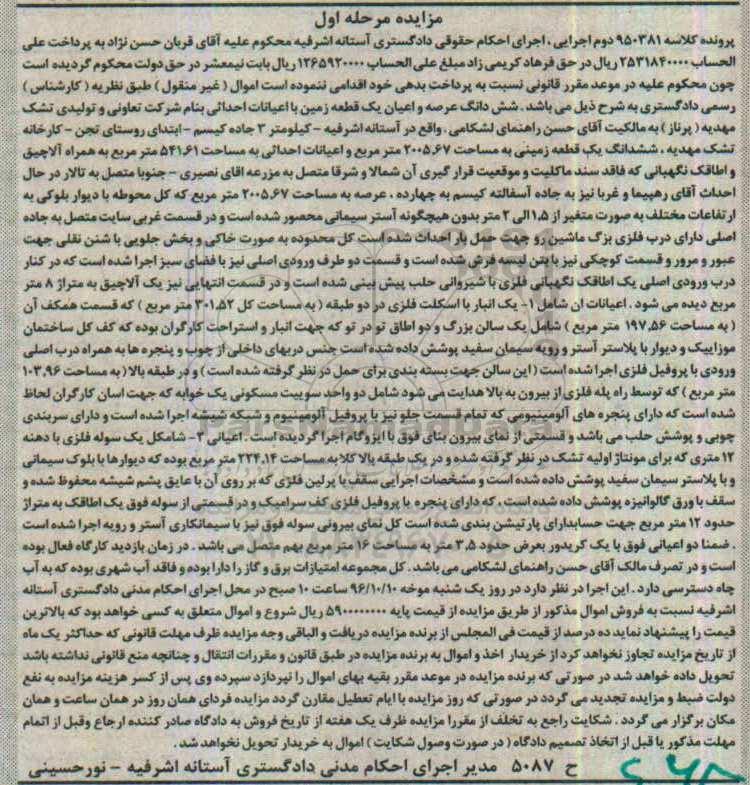 مزایده مرحله اول
پرونده کلاسه ۹۵۰۳۸۱ دوم اجرایی ، اجرای احکام حقوقی دادگستری آستانه اشرفیه محکوم علیه آقای قربان حسن نژاد به پرداخت علی
الحساب ۲۵۳۱۸۴۰۰۰۰ ریال در حق فرهاد کریمی زاد مبلغ علی الحساب ۱۲۶۵۹۲۰۰۰ ریال بابت نیمعشر در حق دولت محکوم گردیده است
چون محکوم علیه در موعد مقرر قانونی نسبت به پرداخت بدهی خود اقدامی ننموده است اموال ( غیر منقول ) طبق نظریه ( کارشناس )
رسمی دادگستری به شرح ذیل می باشد . شش دانگ عرصه و اعیان یک قطعه زمین با اعیانات احداثی بنام شرکت تعاونی و تولیدی تشک
مهدیه ( پرناز ) به مالکیت آقای حسن راهنمای لشکامی . واقع در آستانه اشرفیه – کیلومتر ۳ جاده کیسم – ابتدای روستای تجن – کارخانه
تشک مهدیه ، ششدانگ یک قطعه زمینی به مساحت ۲۰۰۵٫۶۷ متر مربع و اعیانات احداثی به مساحت ۵۴۱٫۶۱ متر مربع به همراه آلاچیق
و اطاقک نگهبانی که فاقد سند مالکیت و موقعیت قرار گیری آن شمالا و شرقا متصل به مزرعه اقای نصیری – جنوبا متصل به تالار در حال
احداث آقای رهپیما و غربا نیز به جاده آسفالته کیسم به چهارده . عرصه به مساحت ۲۰۰۵٫۶۷ متر مربع که کل محوطه با دیوار بلوکی به
ارتفاعات مختلف به صورت متغیر از ۱٫۵ الی ۲ متر بدون هیچگونه آستر سیمانی محصور شده است و در قسمت غربی سایت متصل به جاده
اصلی دارای درب فلزی بزگ ماشین رو جهت حمل بار احداث شده است کل محدوده به صورت خاکی و بخش جلویی با شنن نقلی جهت
عبور و مرور و قسمت کوچکی نیز با بتن لیسه فرش شده است و قسمت دو طرف ورودی اصلی نیز با فضای سبز اجرا شده است که در کنار
درب ورودی اصلی یک اطاقک نگهبانی فلزی با شیروانی حلب پیش بینی شده است و در قسمت انتهایی نیز یک آلاچیق به متراژ ۸ متر
مربع دیده می شود . اعیانات ان شامل ۱- یک انبار با اسکلت فلزی در دو طبقه ( به مساحت کل ۳۰۱٫۵۲ متر مربع ) که قسمت همکف آن
( به مساحت ۱۹۷٫۵۶ متر مربع ) شامل یک سالن بزرگ و دو اطاق تو در تو که جهت انبار و استراحت کارگران بوده که کف کل ساختمان
موزاییک و دیوار با پلاستر آستر و رویه سیمان سفید پوشش داده شده است جنس دربهای داخلی از چوب و پنجره ها به همراه درب اصلی
ورودی با پروفیل فلزی اجرا شده است ( این سالن جهت بسته بندی برای حمل در نظر گرفته شده است ) و در طبقه بالا ( به مساحت ۱۰۳٫۹۶
متر مربع ) که توسط راه پله فلزی از بیرون به بالا هدایت می شود شامل دو واحد سوییت مسکونی یک خوابه که جهت اسان کارگران لحاظ
شده است که دارای پنجره های آلومینیومی که تمام قسمت جلو نیز با پروفیل آلومینیوم و شبکه شیشه اجرا شده است و دارای سربندی
چوبی و پوشش حلب می باشد و قسمتی از نمای بیرون بنای فوق با ایزوگام اجرا گردیده است . اعیانی ۳- شامکل یک سوله فلزی با دهنه
۱۲ متری که برای مونتاژ اولیه تشک در نظر گرفته شده و در یک طبقه بالا کلا به مساحت ۲۲۴٫۱۴ متر مربع بوده که دیوارها با بلوک سیمانی
و با پلاستر سیمان سفید پوشش داده شده است و مشخصات اجرایی سقف با پرلین فلزی که بر روی آن با عایق پشم شیشه محفوظ شده و
سقف با ورق گالوانیزه پوشش داده شده است . که دارای پنجره با پروفیل فلزی کف سرامیک و در قسمتی از سوله فوق یک اطاقک به متراژ
حدود ۱۲ متر مربع جهت حسابدارای پارتیشن بندی شده است کل نمای بیرونی سوله فوق نیز با سیمانکاری آستر و رویه اجرا شده است
. ضمنا دو اعیانی فوق با یک کریدور بعرض حدود ۳٫۵ متر به مساحت ۱۶ متر مربع بهم متصل می باشد . در زمان بازدید کارگاه فعال بوده
است و در تصرف مالک آقای حسن راهنمای لشکامی می باشد . کل مجموعه امتیازات برق و گاز را دارا بوده و فاقد آب شهری بوده که به آب
چاه دسترسی دارد . این اجرا در نظر دارد در روز یک شنبه موخه ۹۶/۱۰/۱۰ ساعت ۱۰ صبح در محل اجرای احکام مدنی دادگستری آستانه
اشرفیه نسبت به فروش اموال مذکور از طریق مزایده از قیمت پایه ۵۹۰۰۰۰۰۰۰۰ ریال شروع و اموال متعلق به کسی خواهد بود که بالاترین
قیمت را پیشنهاد نماید ده درصد از قیمت فی المجلس از برنده مزایده دریافت و الباقی وجه مزایده ظرف مهلت قانونی که حداکثر یک ماه
از تاریخ مزایده تجاوز نخواهد کرد از خریدار اخذ و اموال به برنده مزایده در طبق قانون و مقررات انتقال و چنانچه منع قانونی نداشته باشد
تحویل داده خواهد شد در صورتی که برنده مزایده در موعد مقرر بقیه بهای اموال را نپردازد سپرده وی پس از کسر هزینه مزایده به نفع
دولت ضبط و مزایده تجدید می گردد در صورتی که روز مزایده با ایام تعطیل مقارن گردد مزایده فردای همان روز در همان ساعت و همان
مکان برگزار می گردد . شکایت راجع به تخلف از مقررا مزایده ظرف یک هفته از تاریخ فروش به دادگاه صادر کننده ارجاع وقبل از اتمام
مهلت مذکور یا قبل از اتخاذ تصمیم دادگاه ( در صورت وصول شکایت ) اموال به خریدار تحویل نخواهد شد .
ح ۵۰۸۷ مدیر اجرای احکام مدنی دادگستری آستانه اشرفیه – نورحسینی